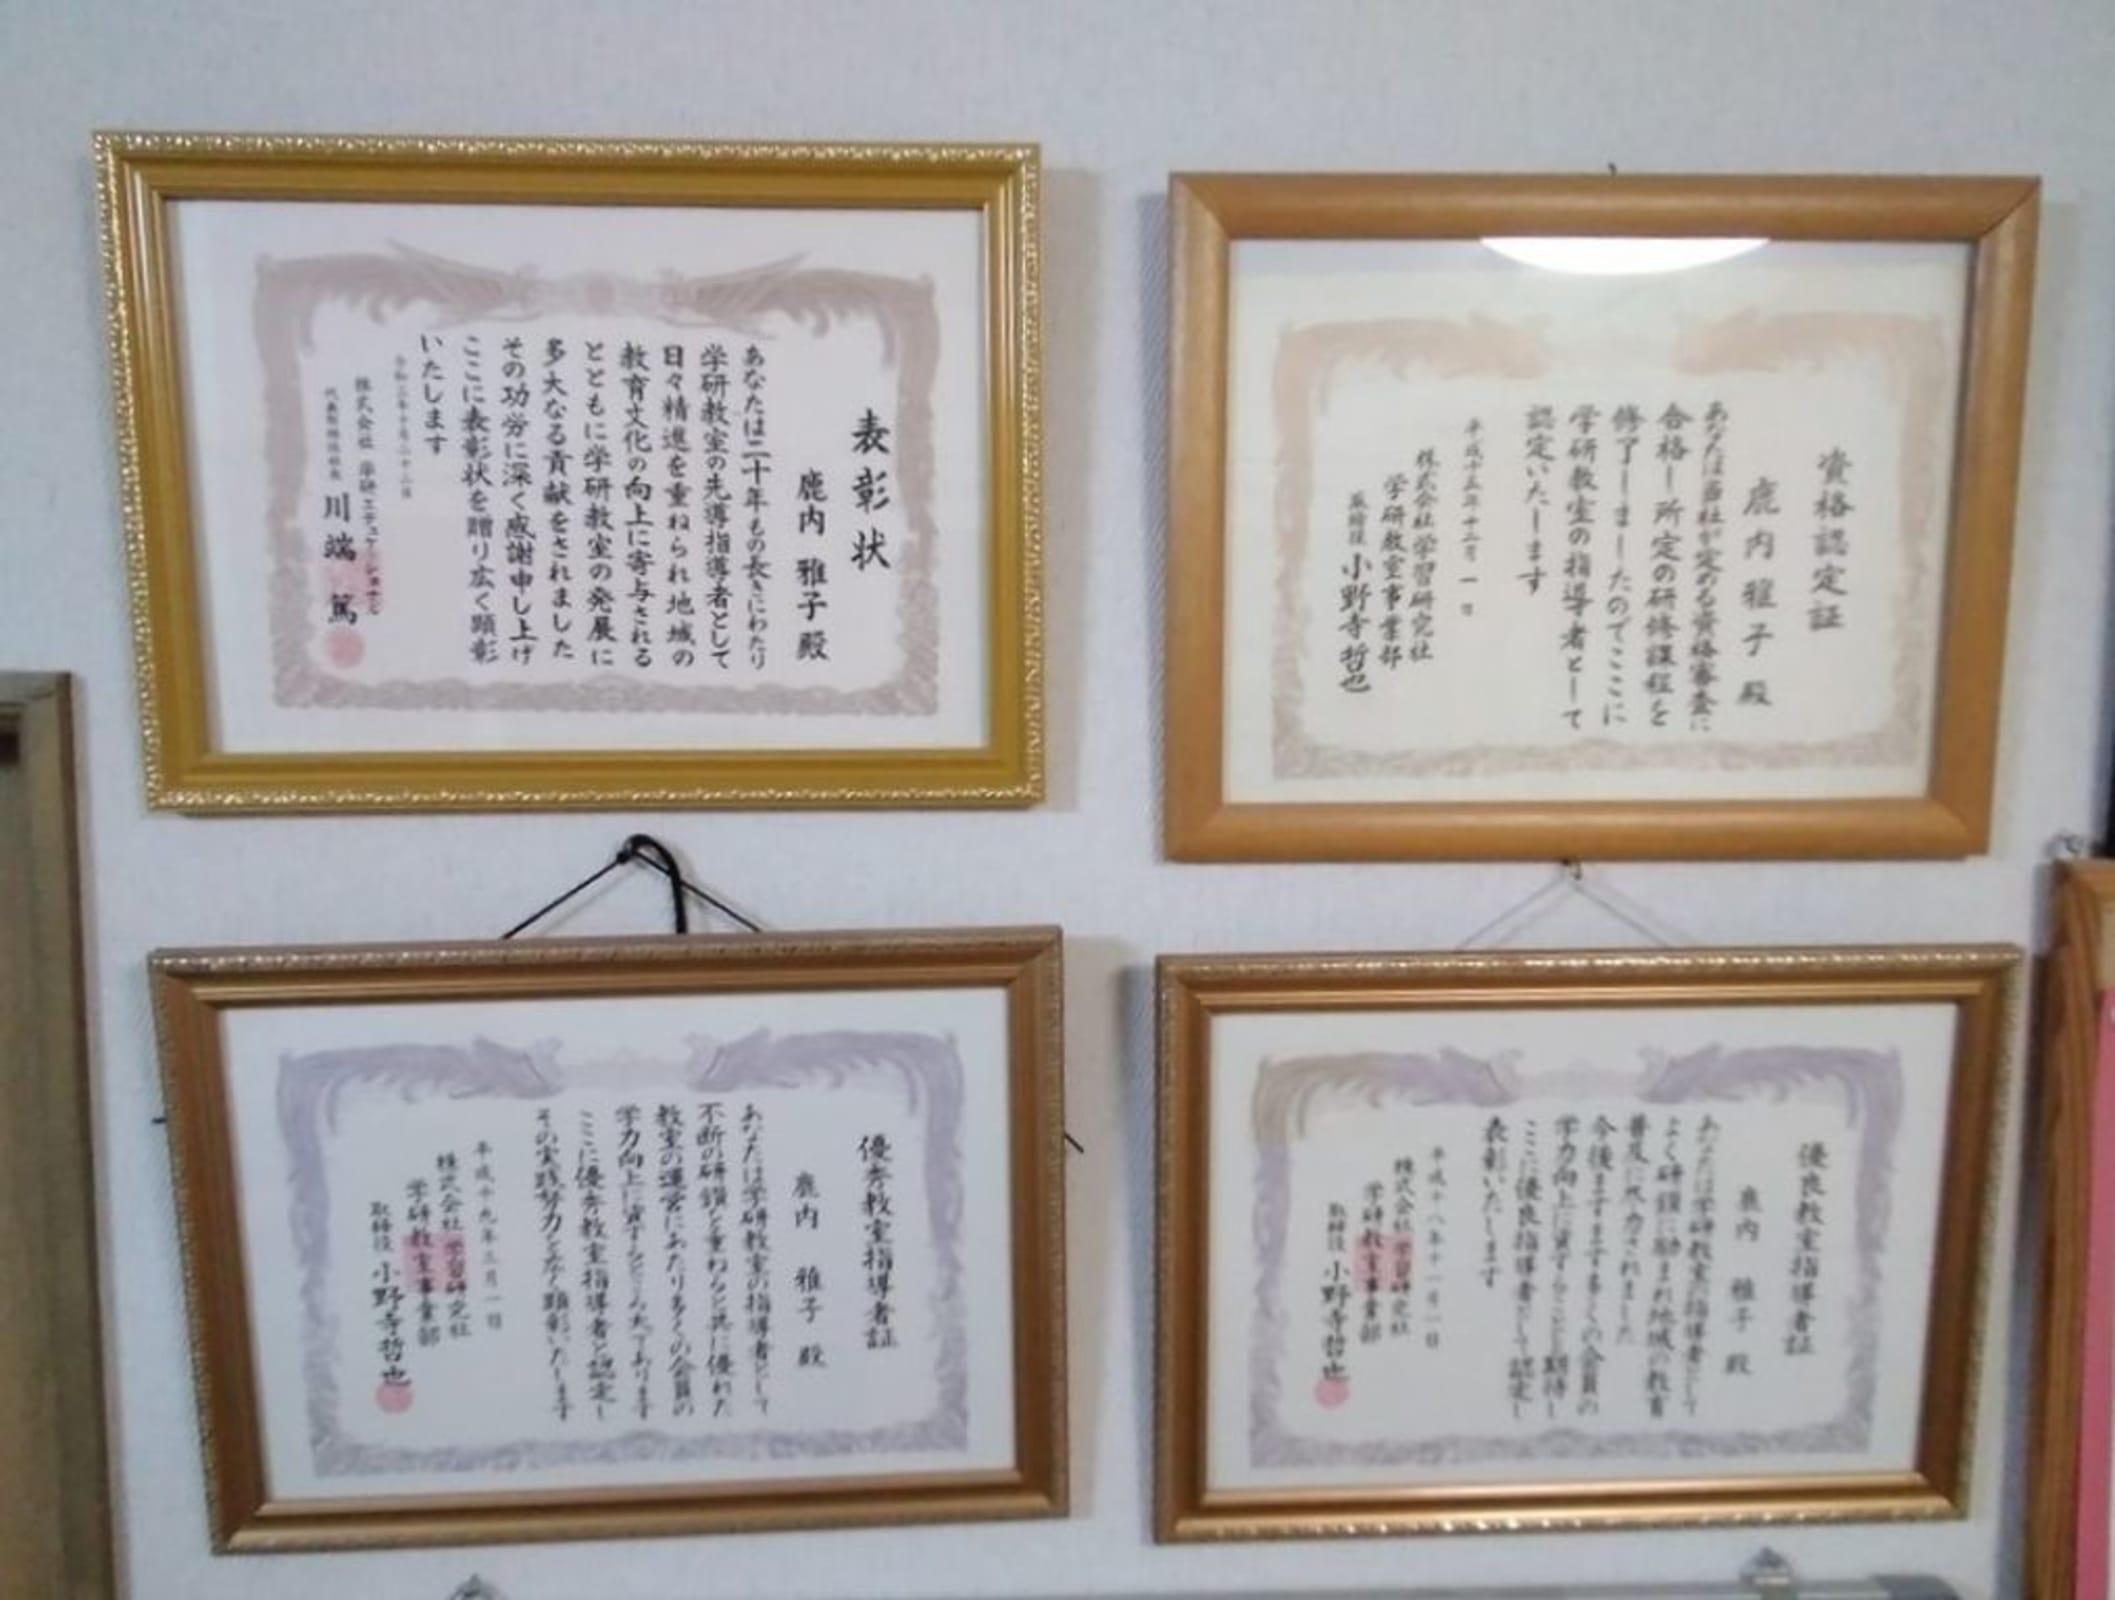 表彰状
鹿内 雅子 殿
あなたは二十年もの長きにわたり
学研教室の先導指導者として
日々精進を重ねられ地域の
教育文化の向上に寄与される
とともに学研教室の発展に
多大なる貢献をされました
その功労に深く感謝申し上げ
ここに表彰状を贈り広く顕彰
いたします
令和三年十月二十二日
株式会社 学研エデュケーショナル
代表取締役社長 川端 篤
資格認定証
鹿内 雅子 殿
あなたは当社が定める資格審査に
合格し所定の研修課程を
修了しましたのでここに
学研教室の指導者として
認定いたします
平成十五年十二月一日
株式会社学習研究社
学研教室事業部
取締役 小野寺哲也
優秀教室指導者証
鹿内 雅子 殿
あなたは学研教室の指導者として
不断の研鑽を重ねると共に優れた
教室の運営にあたり多くの会員の
学力向上に資するところ大であります
ここに優秀教室指導者と認定し
その実践努力を広く顕彰いたします
平成十九年三月一日
株式会社学習研究社
学研教室事業部
取締役 小野寺哲也
優良教室指導者証
鹿内 雅子 殿
あなたは学研教室の指導者として
よく研鑽に励まれ地域の教育
普及に尽力されました
今後ますます多くの会員の
学力向上に資することを期待し
ここに優良指導者として認定し
表彰いたします
平成十八年十一月一日
株式会社学習研究社
学研教室事業部
取締役 小野寺哲也